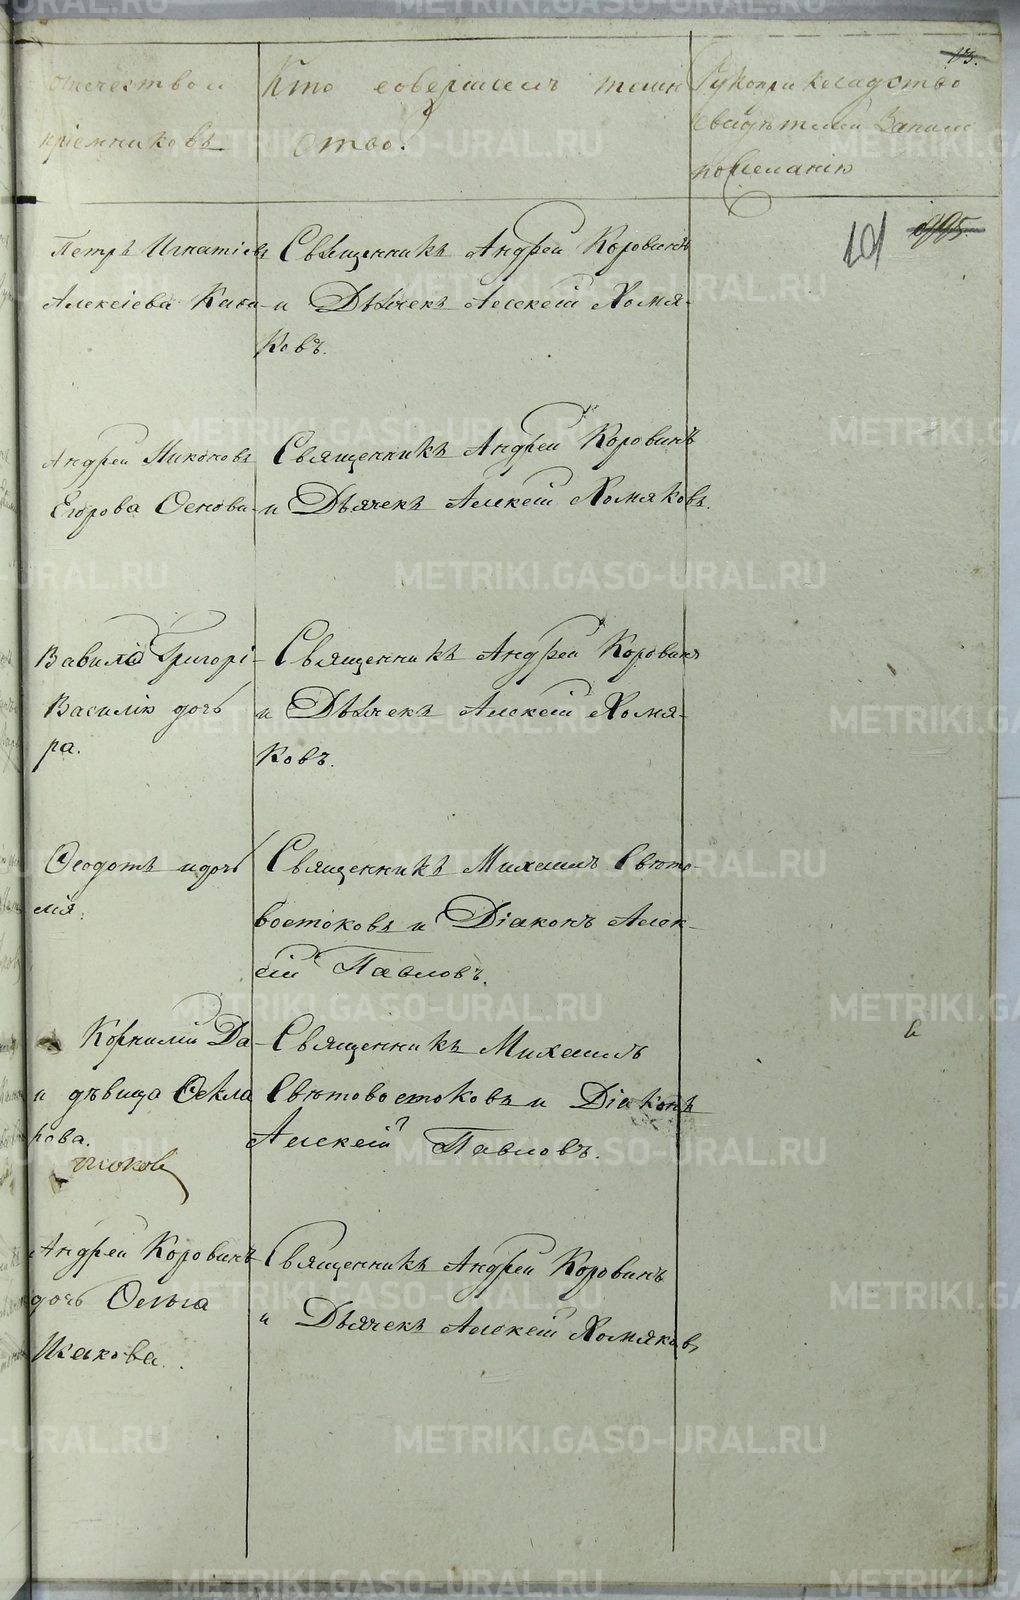 13.
отчество и
кріемниковъ
Кто совершалъ таин
ство.
Рукоприкладство
свидѣтелей Записи
по желанію
101
895.
Петръ Игнатіевъ
Алексіева Ката-
Священникъ Андрей Коровинъ
и Дьячекъ Алексій Хомя-
ковъ.
Андрей Никоновъ
Егорова Основи-
Священникъ Андрей Коровинъ
и Дьячекъ Алексій Хомяковъ.
Вавила Григорі-
Василію дочь
ра.
Священникъ Андрей Коровинъ
и Дьячекъ Алексій Хомя-
ковъ.
Ѳеодотъ и дочь
мія.
Священникъ Михаилъ Свѣто-
востоковъ и Діаконъ Алек-
сій Павловъ.
Корнилій Да-
и дѣвица Ѳекла
рова.
Священникъ Михаилъ
Свѣтовостоковъ и Діаконъ
Алексій Павловъ.
Андрей Коровинъ
дочь Ольга
Исакова.
Священникъ Андрей Коровинъ
и Дьячекъ Алексій Хомяковъ
METRIKI.GASO-URAL.RU